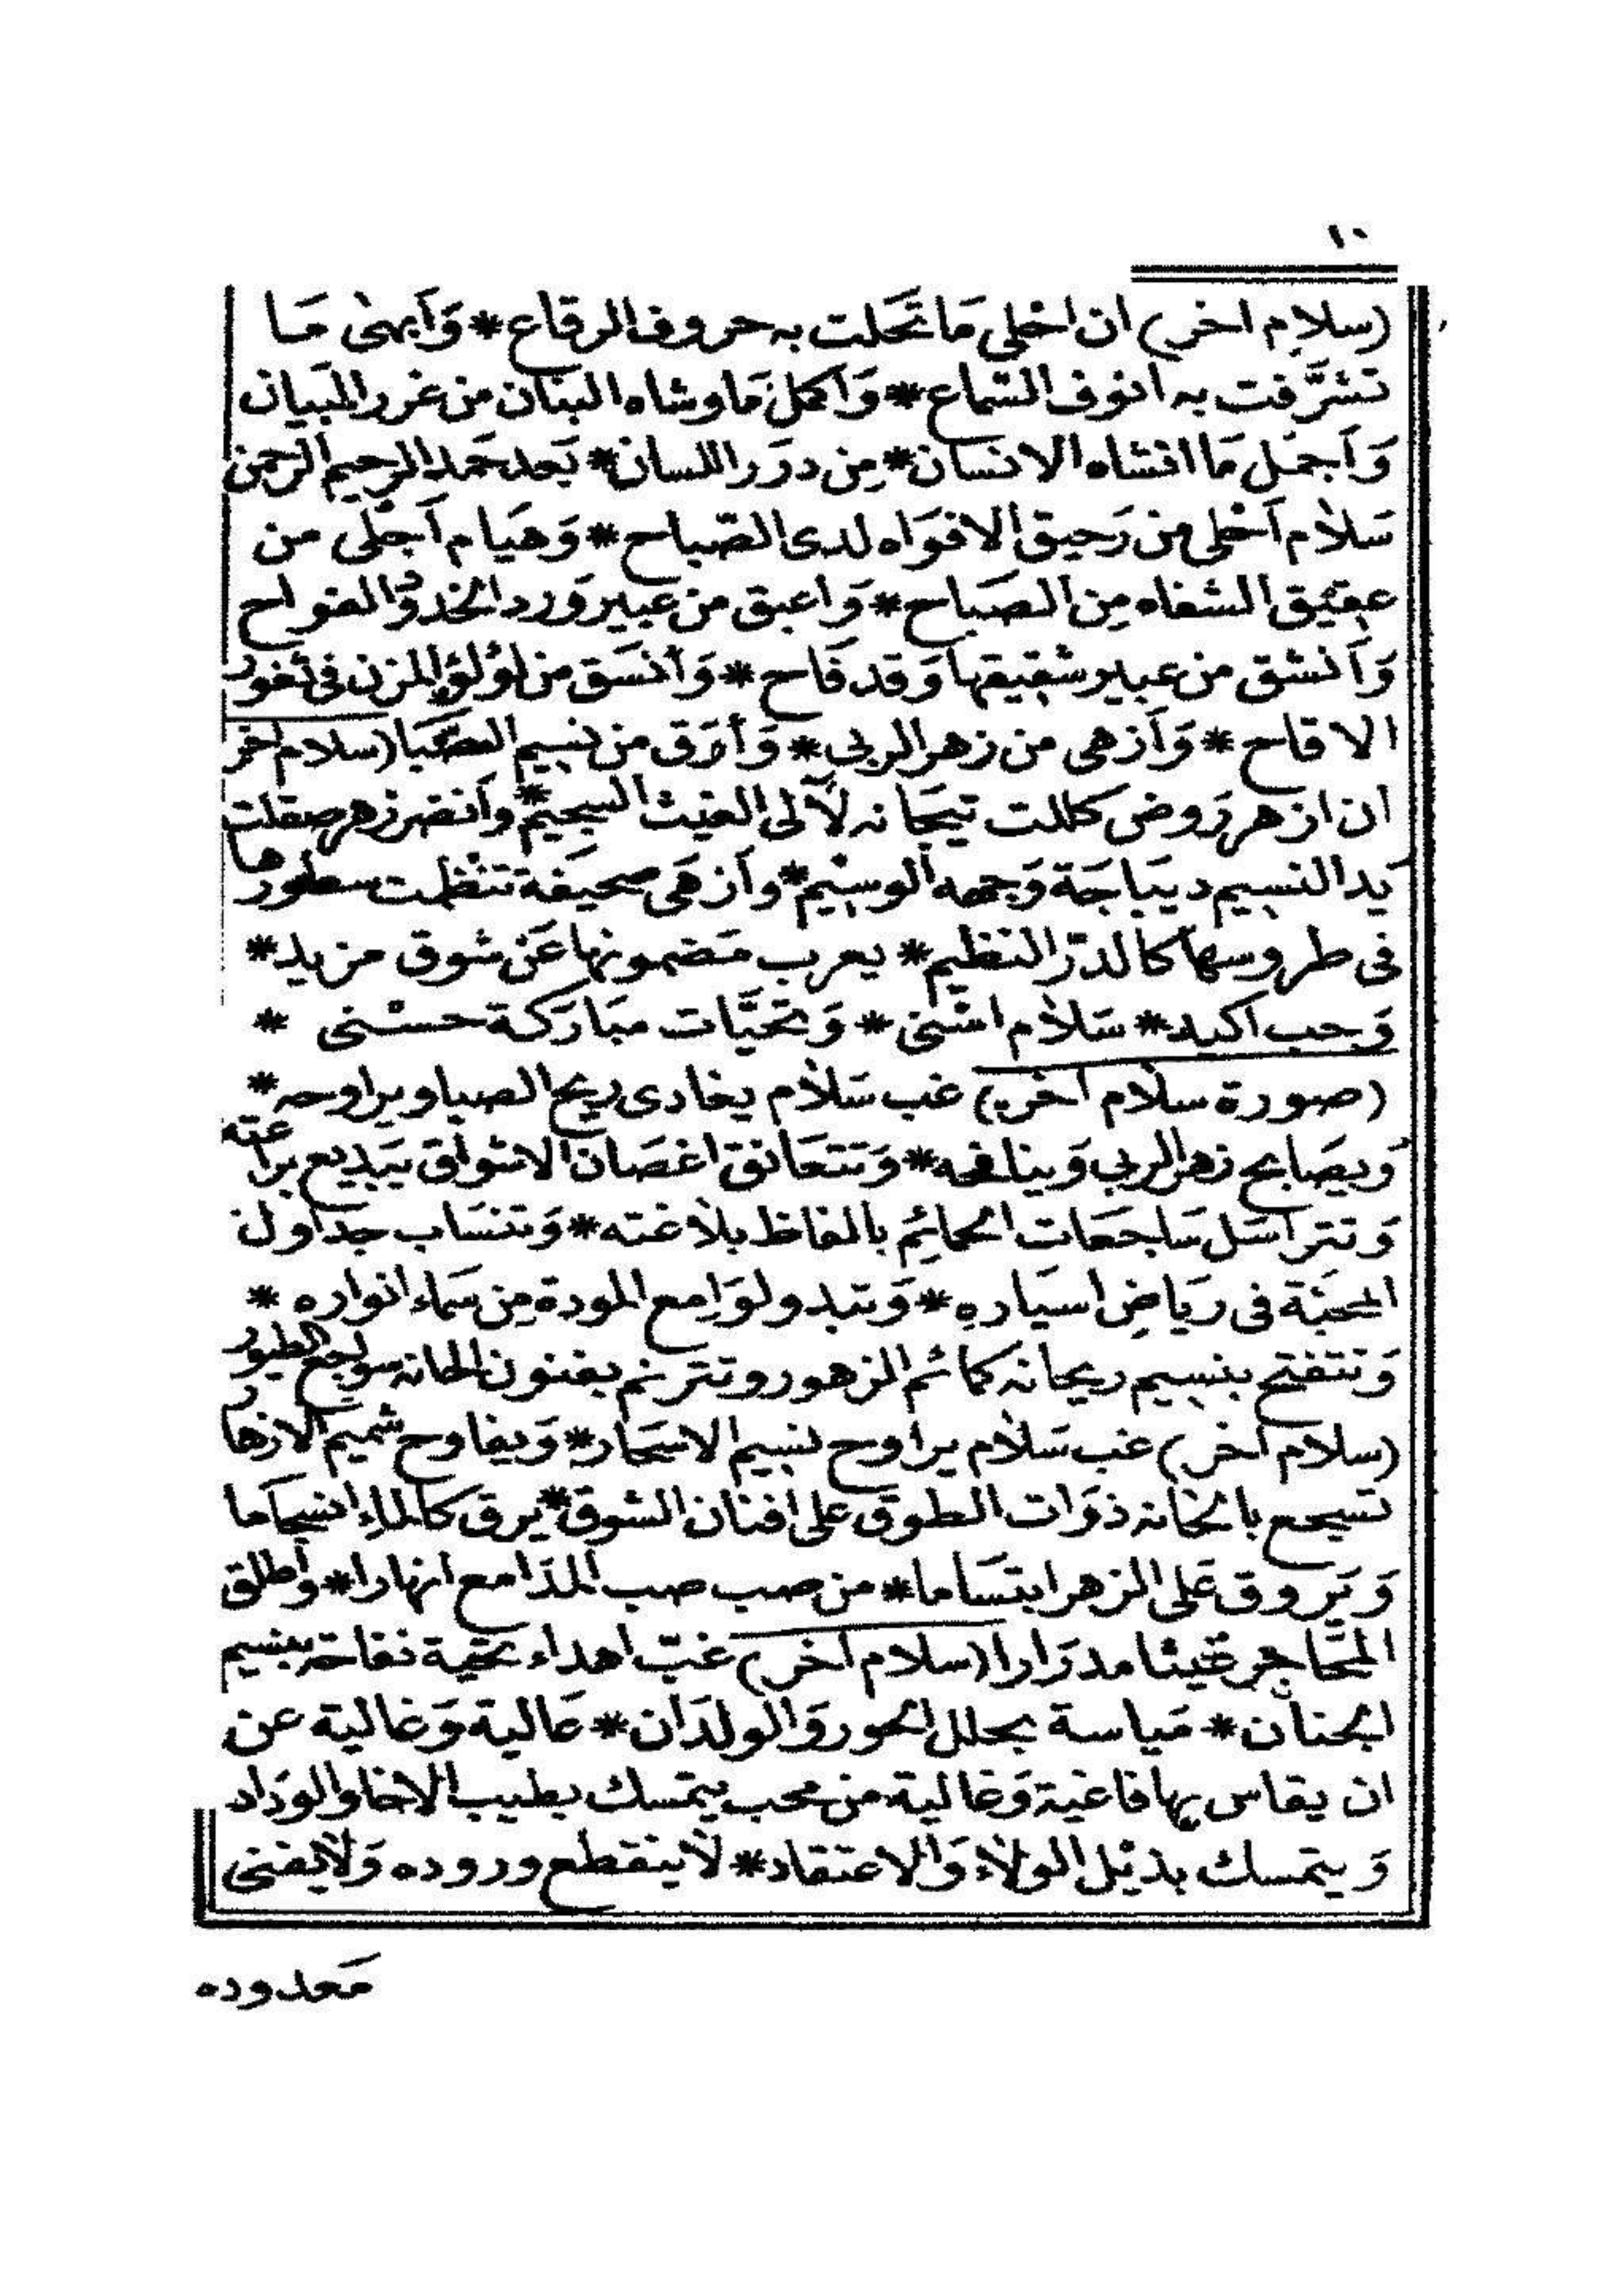 ١٠
(سلام اخر) ان احلى مَا تَحَلت به حروف الرقاع * وَاَبهىٰ مَا
تشرَّفت به انوف السّماع * وَاَكمل مَا وشاه البنان من غرر البَيان
وَاَجمَل مَا انشاه الانسان * مِن درَر اللسان * بَعد حَمد الرحيم الرحمن
سَلاٰم اَحْلى من رَحيق الافوَاه لدى الصّباح * وَهيَام اَجْلى من
عقيق الشفاه مِن الصَباح * وَاعبق من عبير وَرد الخدوْد الفواح
وَاَنشق من عبير شقيقها وَقد فَاح * وَاَنسَق من لؤلؤ المزن فى ثغور
الاقاح * وَاَزهى من زهر الربى * وَأرَق من نسيم الصَّبَا (سلام اخر
ان ازهر رَوض كللت تيجَانه لآلى الغيث السجيم * وَاَنضر زهر صقلت
يَد النسيم ديبَاجَة وَجهه الوسيْم * وازهَى صحيفة تنظمت سطورها
فى طروسها كالدرّ النظيم * يعرب مَضمونها عَن شوق مزيد *
وَحب اكيد * سَلاٰم اسْنى * وَتحيَّات مبَارَكة حسْنى *
(صورة سلاٰم اخر) غب سَلاٰم يغادى ريح الصبا ويراوحه *
وَيصَابح زهر الربى وَينافحه * وَتتعَانق اغصَان الاشواق ببَديع براعته
وَتترَاسَل سَاجعَات الحمائِم بالفاظ بلاٰغته * وَتنسَاب جدَاول
المحبَّة فى ريَاضِ اسيَارهِ * وَتبدو لوَامع المودة مِن سَماء انواره *
وَتتفتح بنسيم ريحانه كمَائم الزهور وتترنم بفنون الحانه سواجع الطيور
(سلاٰم اخر) غب سَلاٰم يراوح نسيم الاسحَار * وَيفاوح شميم الازهار
تسجع بالحَانه ذوَات الطوق على افنان الشوق * يرق كالماء انسجَاما
وَيَروق عَلى الزهر ابتسَاما * من صب صب المدَامع انهارا * وَاطلق
المحَاجر غيثا مدرَارا (سلام اخر) غبّ اهداء تحية نفاحة بنسيم
الجنان * مَياسة بحلل الحور وَالولدَان * عَالية وَغالية عن
ان يقاس بها فاغية وَغالية من محب يتمسك بطيب الاخا والوَداد
وَيتمسك بذيْل الولاٰء وَالاعتقاد * لاٰ ينقطع وروده وَلاٰ يفنى
مَعدوده